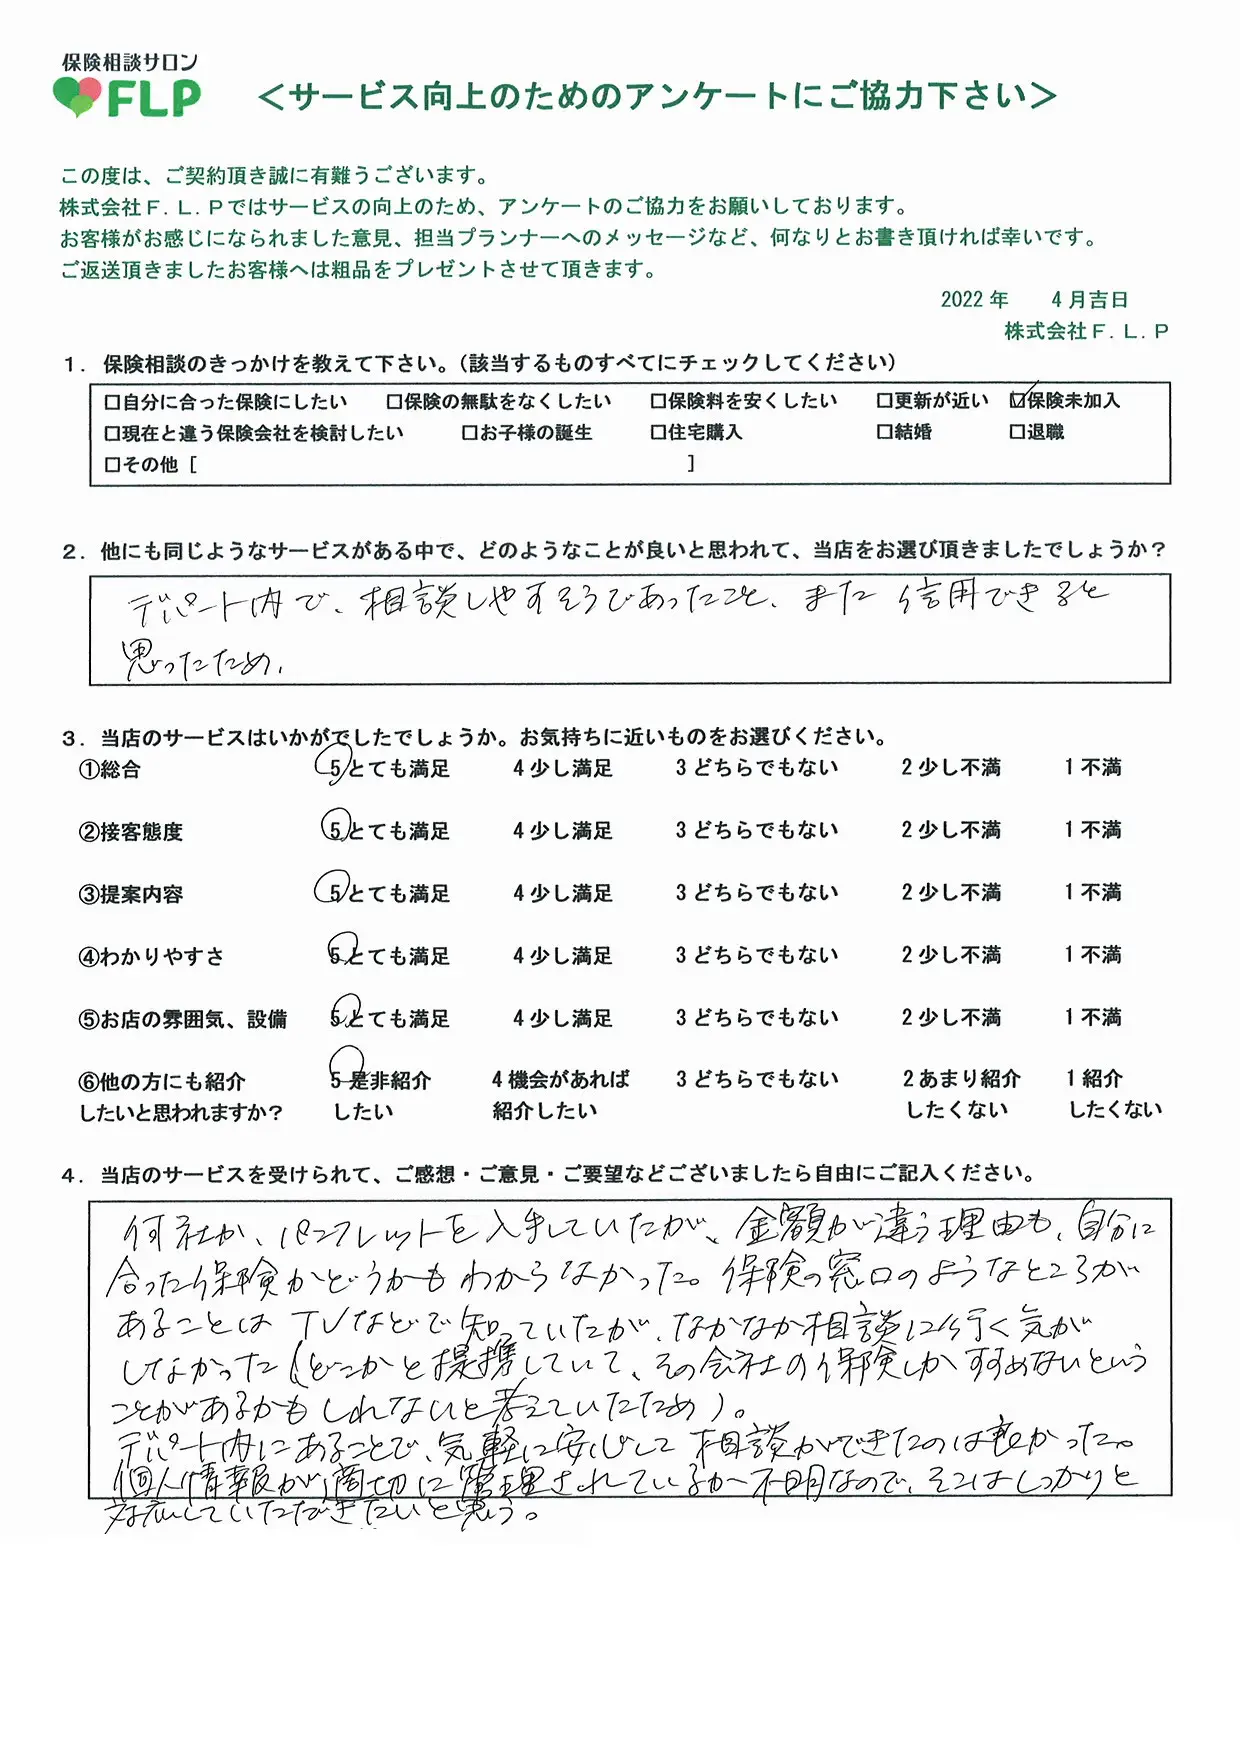 保険相談サロン
FLP
＜サービス向上のためのアンケートにご協力下さい＞
この度は、ご契約頂き誠に有難うございます。
株式会社Ｆ．Ｌ．Ｐではサービスの向上のため、アンケートのご協力をお願いしております。
お客様がお感じになられました意見、担当プランナーへのメッセージなど、何なりとお書き頂ければ幸いです。
ご返送頂きましたお客様へは粗品をプレゼントさせて頂きます。
2022 年　　4 月吉日
株式会社Ｆ．Ｌ．Ｐ
１．保険相談のきっかけを教えて下さい。（該当するものすべてにチェックしてください）
□自分に合った保険にしたい　□保険の無駄をなくしたい　□保険料を安くしたい　□更新が近い　☑保険未加入
□現在と違う保険会社を検討したい　□お子様の誕生　□住宅購入　□結婚　□退職
□その他［　　　　　　　　］
２．他にも同じようなサービスがある中で、どのようなことが良いと思われて、当店をお選び頂きましたでしょうか？
デパート内で、相談しやすそうであったこと、また信用できると
思ったため.
３．当店のサービスはいかがでしたでしょうか。お気持ちに近いものをお選びください。
①総合　5 とても満足　4 少し満足　3 どちらでもない　2 少し不満　1 不満
②接客態度　5 とても満足　4 少し満足　3 どちらでもない　2 少し不満　1 不満
③提案内容　5 とても満足　4 少し満足　3 どちらでもない　2 少し不満　1 不満
④わかりやすさ　5 とても満足　4 少し満足　3 どちらでもない　2 少し不満　1 不満
⑤お店の雰囲気、設備　5 とても満足　4 少し満足　3 どちらでもない　2 少し不満　1 不満
⑥他の方にも紹介　5 是非紹介　4 機会があれば　3 どちらでもない　2 あまり紹介　1 紹介
したいと思われますか？　したい　紹介したい　したくない　したくない
４．当店のサービスを受けられて、ご感想・ご意見・ご要望などございましたら自由にご記入ください。
何社か、パンフレットを入手していたが、金額が違う理由も、自分に
合った保険かどうかもわからなかった。保険の窓口のようなところが
あることはTVなどで知っていたが、なかなか相談に行く気が
しなかった（どこかと提携していて、その会社の保険しかすすめないという
ことがあるかもしれないと考えていたため）。
デパート内にあることで、気軽に安心して相談ができたのは良かった。
個人情報が適切に管理されているか不明なので、そこはしっかりと
対応していただきたいと思う。